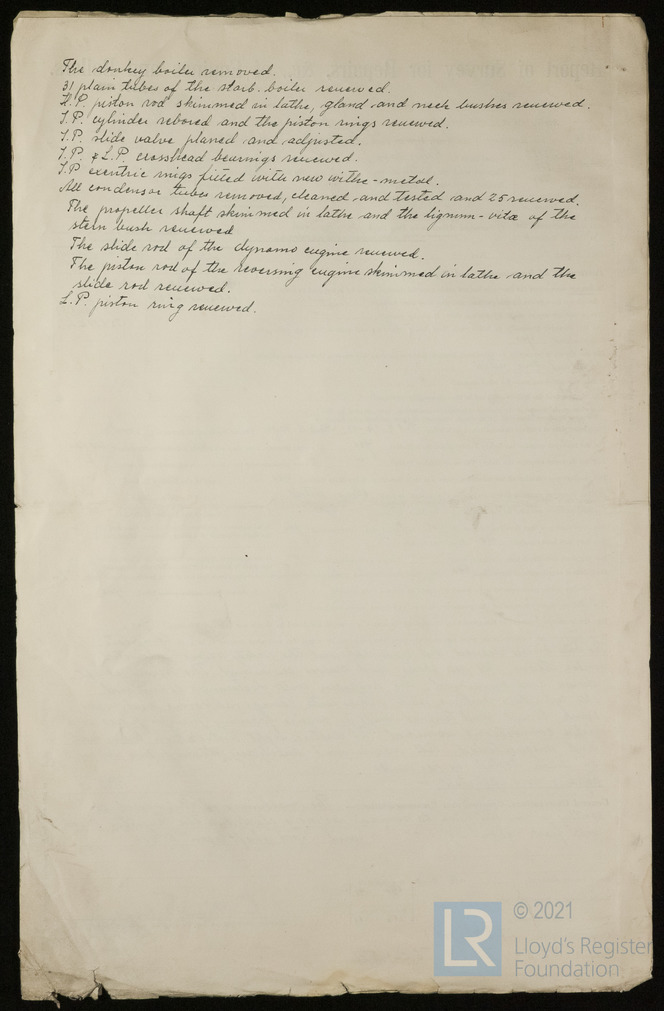 The donkey boiler removed.
31 plain tubes of the starb. boiler renewed.
H.P. piston rod skimmed in lathe, gland and neck bushes renewed.
I.P. cylinder rebored and the piston rings renewed.
I.P. slide valve planed and adjusted.
I.P. & L.P. crosshead bearings renewed.
I.P. excentric rings fitted with new withe-metal.
All condensor tubes removed, cleaned and tested and 25 renewed.
The propeller shaft skimmed in lathe and the lignum-vitæ of the
stern bush renewed
The slide rod of the dynamo engine renewed.
The piston rod of the reversing engine skimmed in lathe and the
slide rod renewed.
L.P. piston ring renewed.
LR
© 2021
Lloyd's Register
Foundation